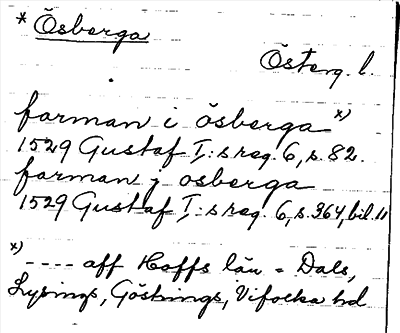 * Ösberga
Österg. l.
farman i ösberga x)
1529 Gustaf I:s reg. 6, s. 82.
farman j osberga
1529 Gustaf I:s reg. 6, s. 364, bil. 11
x) ---- aff Hoffs län = Dals,
Lysings, Göstrings, Vifolka hd